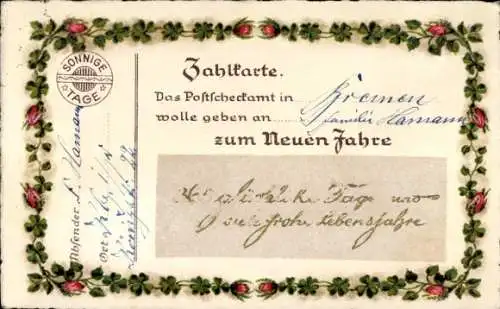 SONNIGE
TAGE
Zahlkarte.
Das Postscheckamt in Bremen
wolle geben an Familie Hamann
zum Neuen Jahre
glückliche Tage und
viele frohe Lebensjahre
Absender Hamann
Ort